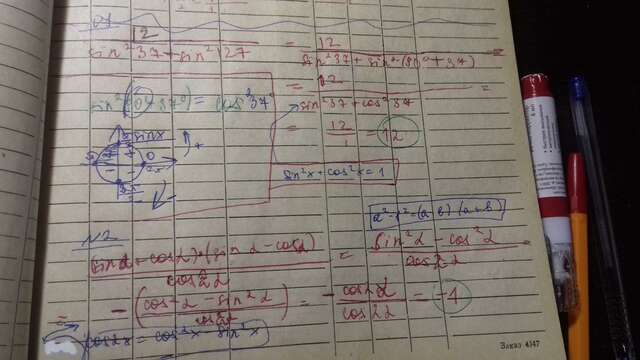 12 / (sin²37 + sin²127) = 12 / (sin²37 + sin²(90° + 37)) =
= 12 / (sin²37 + cos²37) =
= 12 / 1 = 12
sin²x + cos²x = 1
sin x
N2
a² - b² = (a - b)(a + b)
(sin α + cos α) · (sin α - cos α) / cos2α = (sin²α - cos²α) / cos2α
= - (cos²α - sin²α) / cos2α = - cos2α / cos2α = -1
cos2x = cos²x - sin²x
Заказ 4147